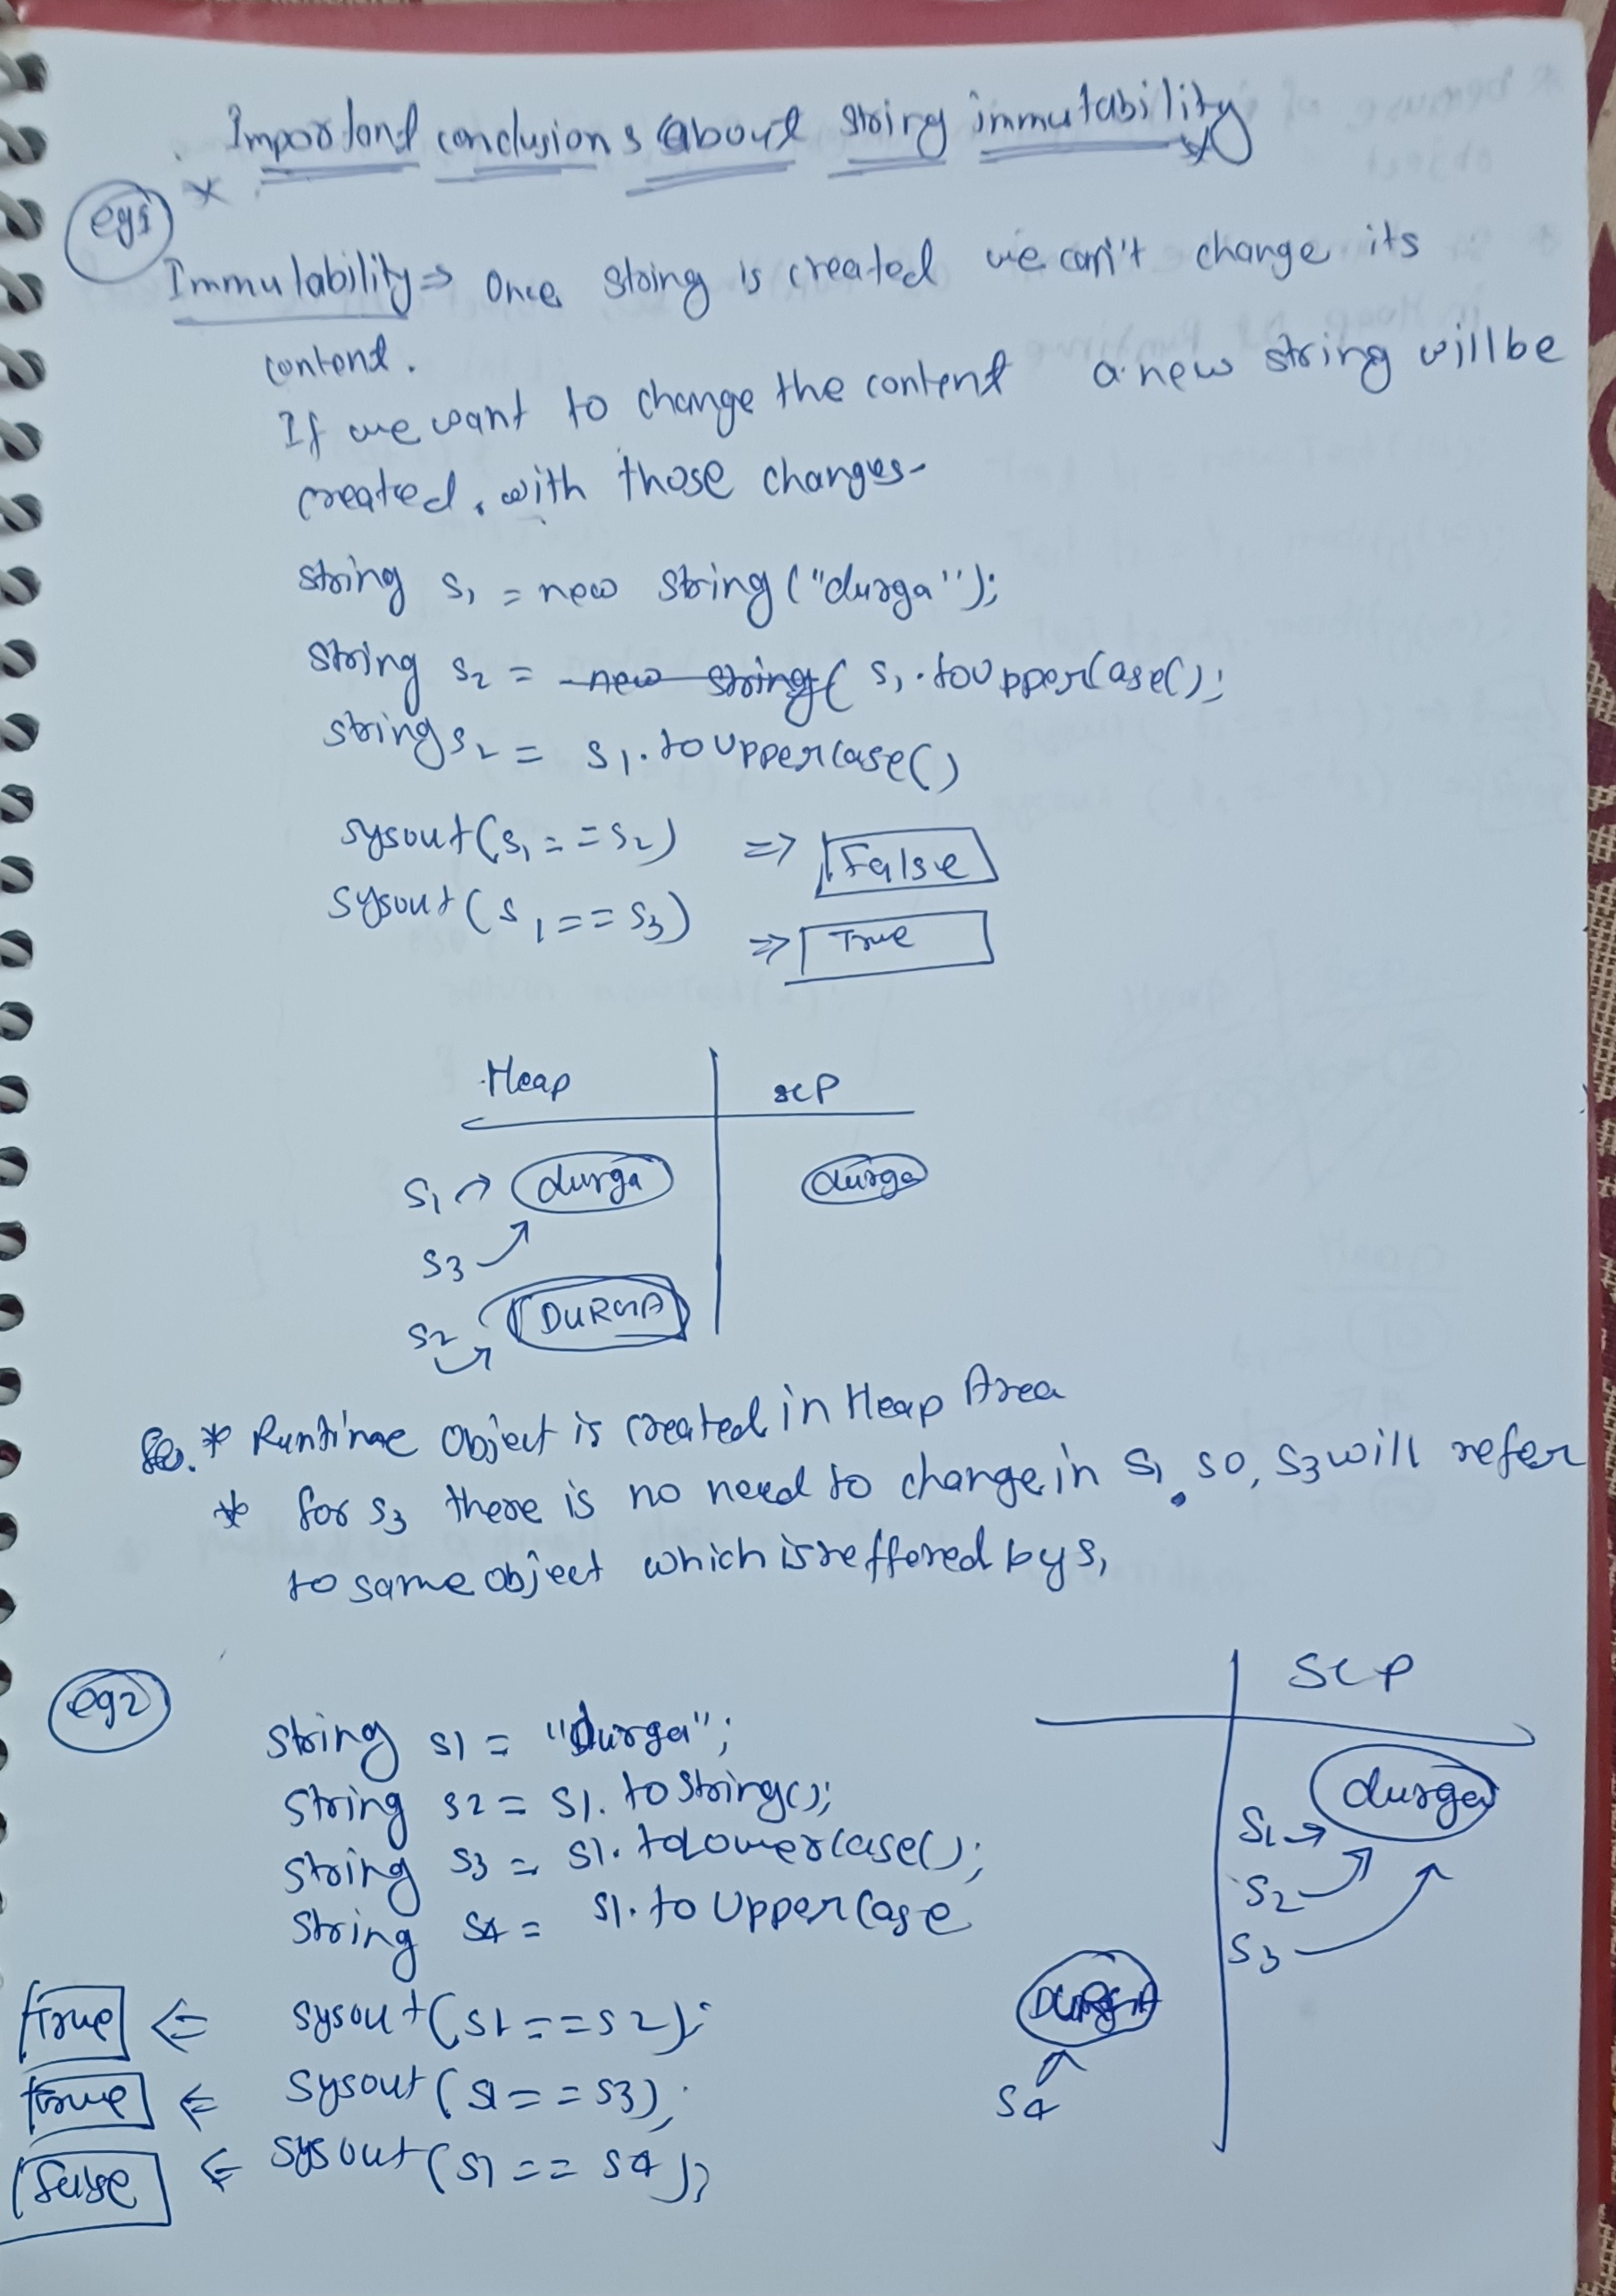 Important conclusions about string immutability
eg1 *
Immutability => Once string is created we can't change its
content.
If we want to change the content a new string will be
created, with those changes.
string s1 = new string ("durga");
string s2 = new string( s1.toUpperCase();
string s2 = s1.toUpperCase()
sysout(s1 == s2) => False
sysout(s1 == s3) => True
Heap scp
s1 -> durga durga
s3
s2 DURGA
* Runtime Object is created in Heap Area
* for s3 there is no need to change in s1 so, s3 will refer
to same object which is reffered by s1
eg2
SCP
string s1 = "durga"; durga
string s2 = s1.toString(); s1 ->
string s3 = s1.toLowerCase(); s2
string s4 = s1.toUpperCase s3
True <= sysout(s1 == s2); DURGA
true <= sysout(s1 == s3); s4
false <= sysout(s1 == s4);